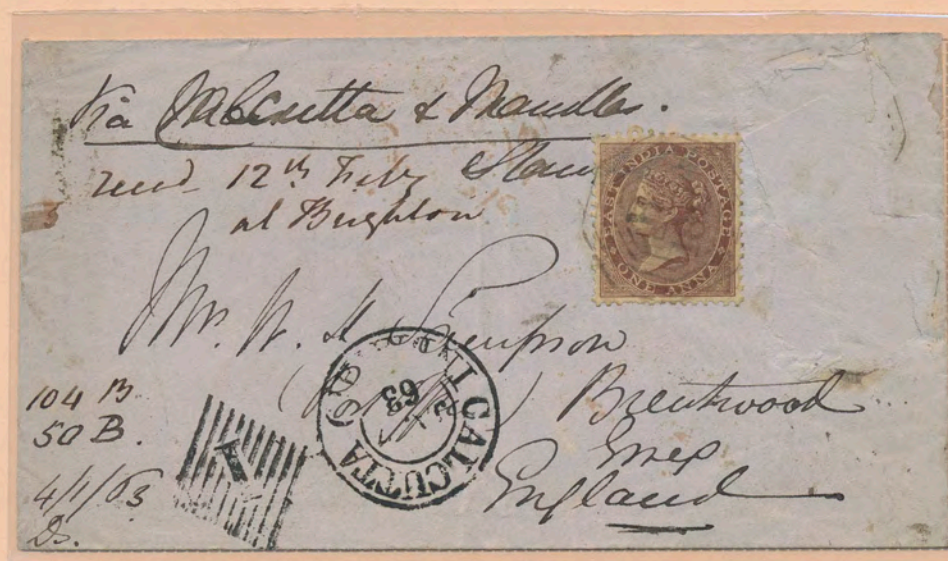 Via Calcutta & Marseilles.
recd 12th Feby Steamer
at Brighton
EAST INDIA POSTAGE
ONE ANNA
Mr. W. H. Simpson
Brentwood
Essex
England
CALCUTTA
63
104 B
50 B.
4/1/63
Ds.